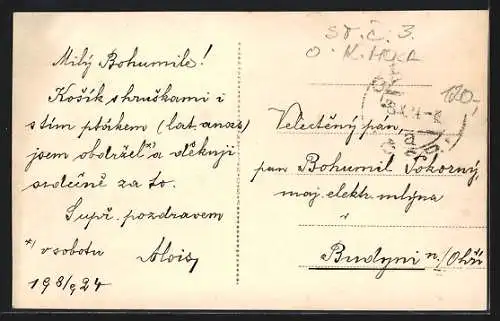 Milý Bohumile!
Košík s hruškami i
s tím ptákem (lat. anas)
jsem obdržel*) a děkuji
srdečně za to.
S upř. pozdravem
*) v sobotu Alois
19 8/9 24
ST. Č. 3.
O. K.
120,-
Velectěný pán,
pan Bohumil Pokorný,
maj. elektr. mlýna
v
Budyni n./Ohří